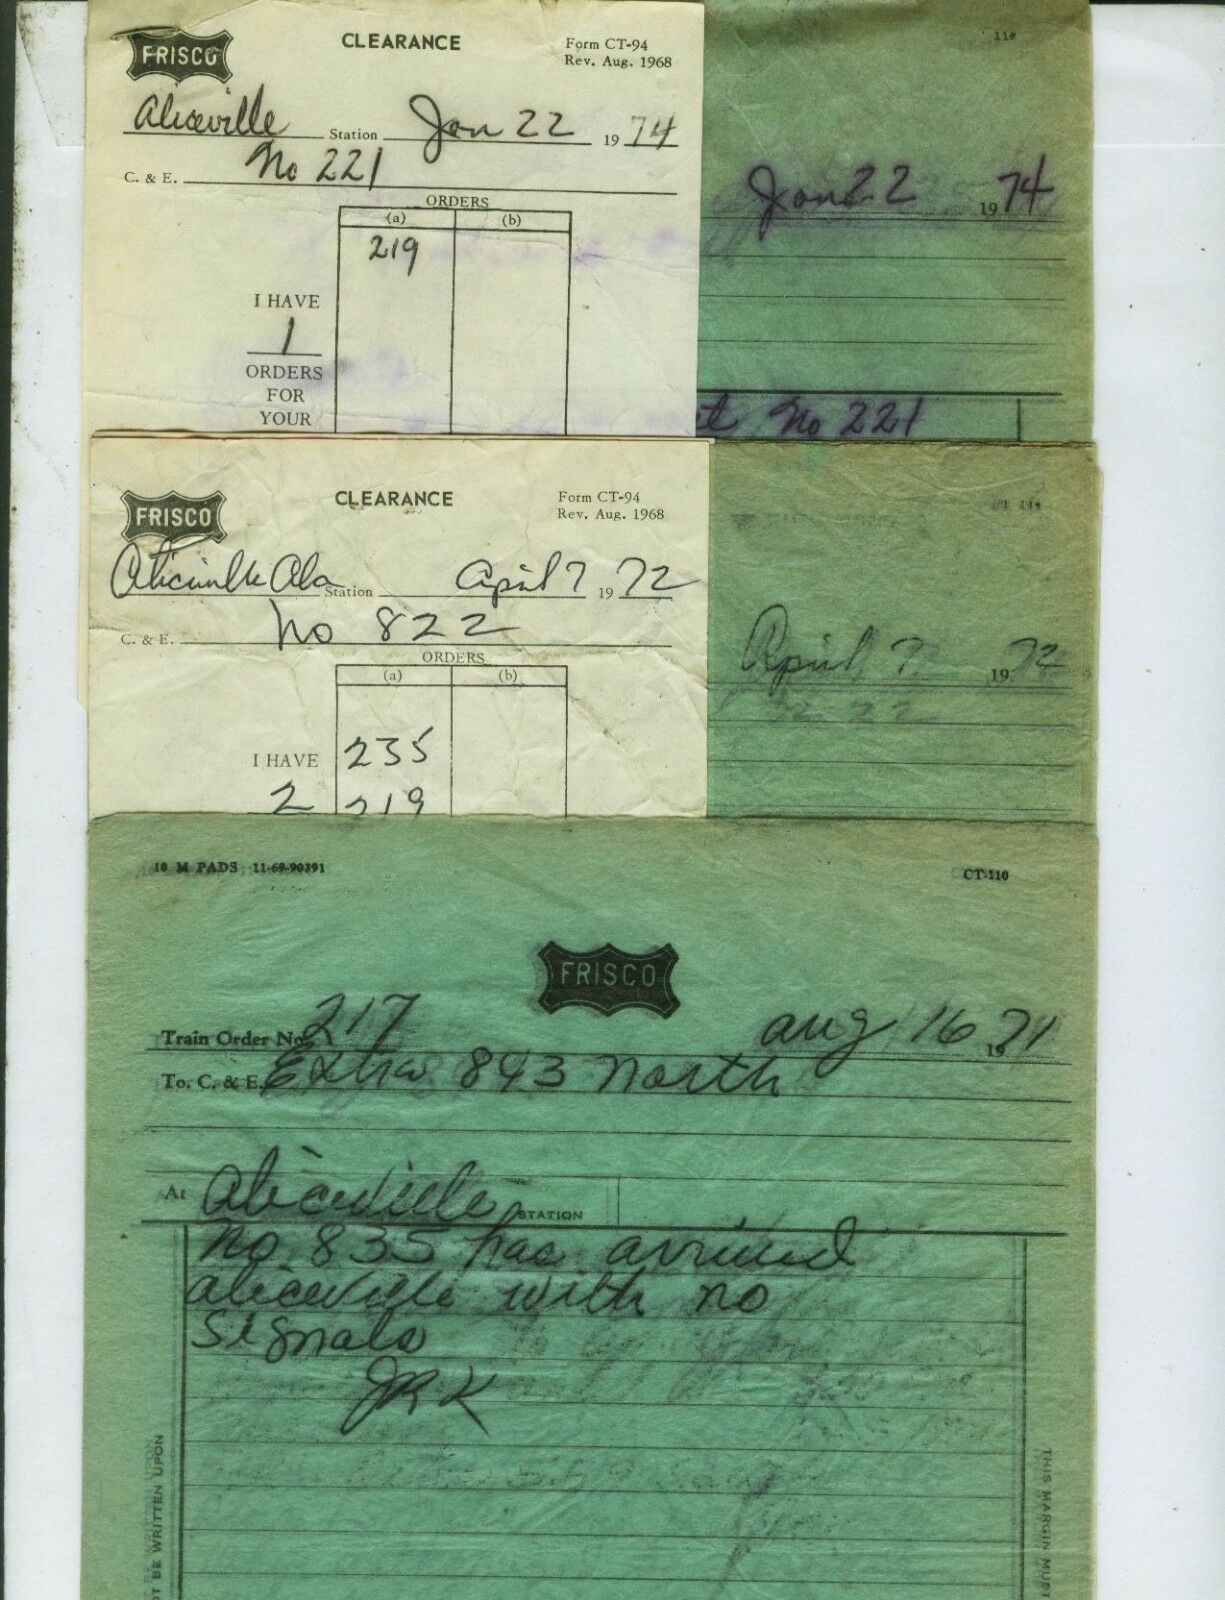 FRISCO
CLEARANCE
Form CT-94
Rev. Aug. 1968
Aliceville Station Jan 22 1974
C. & E. No 221
ORDERS
(a) (b)
219
I HAVE
1
ORDERS
FOR
YOUR
110
Jan 22 1974
No 221
FRISCO
CLEARANCE
Form CT-94
Rev. Aug. 1968
Aliceville Ala Station April 7 1972
C. & E. No 822
ORDERS
(a) (b)
I HAVE 235
2 219
April 7 1972
10 M PADS 11-69-90391
CT-110
FRISCO
Train Order No. 217 Aug 16 1971
To. C. & E. Extra 843 North
At Aliceville STATION
No 835 has arrived
Aliceville with no
signals
JRK
OT BE WRITTEN UPON
THIS MARGIN MUST